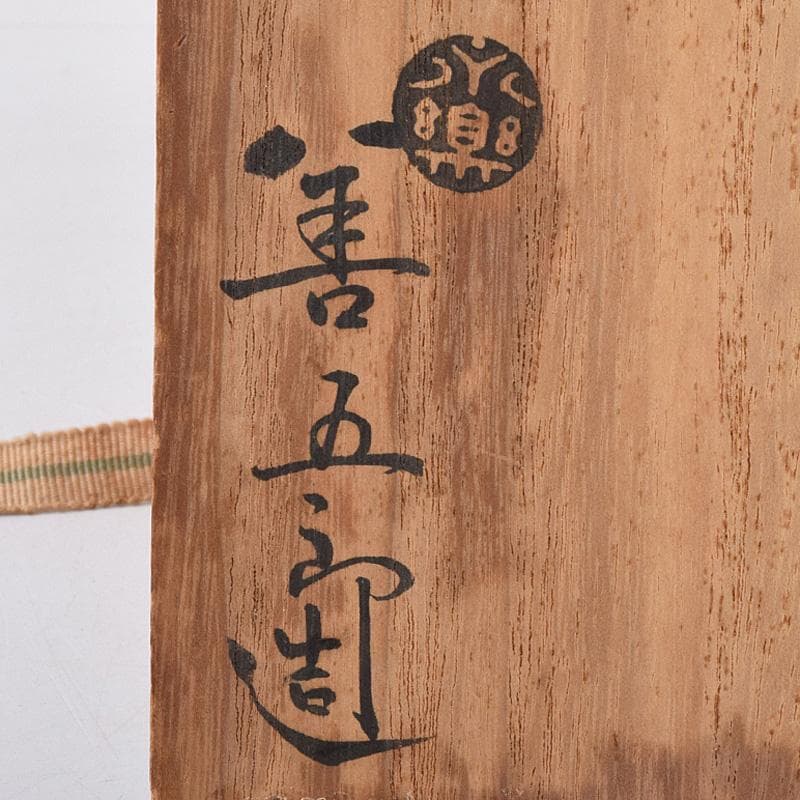 善五郎造